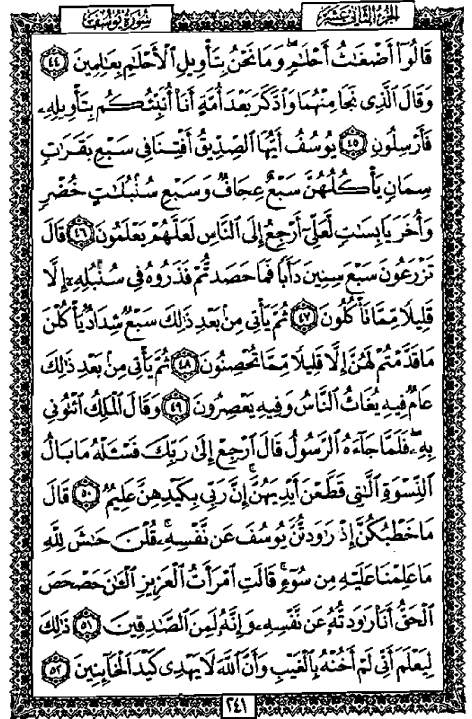 الجزء الثاني عشر
سورة يوسف
قَالُوٓا۟ أَضْغَٰثُ أَحْلَٰمٍۢ ۖ وَمَا نَحْنُ بِتَأْوِيلِ ٱلْأَحْلَٰمِ بِعَٰلِمِينَ ٤٤
وَقَالَ ٱلَّذِى نَجَا مِنْهُمَا وَٱدَّكَرَ بَعْدَ أُمَّةٍ أَنَا۠ أُنَبِّئُكُم بِتَأْوِيلِهِۦ
فَأَرْسِلُونِ ٤٥ يُوسُفُ أَيُّهَا ٱلصِّدِّيقُ أَفْتِنَا فِى سَبْعِ بَقَرَٰتٍۢ
سِمَانٍۢ يَأْكُلُهُنَّ سَبْعٌ عِجَافٌۭ وَسَبْعِ سُنۢبُلَٰتٍ خُضْرٍۢ
وَأُخَرَ يَابِسَٰتٍۢ لَّعَلِّىٓ أَرْجِعُ إِلَى ٱلنَّاسِ لَعَلَّهُمْ يَعْلَمُونَ ٤٦ قَالَ
تَزْرَعُونَ سَبْعَ سِنِينَ دَأَبًۭا فَمَا حَصَدتُّمْ فَذَرُوهُ فِى سُنۢبُلِهِۦٓ إِلَّا
قَلِيلًۭا مِّمَّا تَأْكُلُونَ ٤٧ ثُمَّ يَأْتِى مِنۢ بَعْدِ ذَٰلِكَ سَبْعٌۭ شِدَادٌۭ يَأْكُلْنَ
مَا قَدَّمْتُمْ لَهُنَّ إِلَّا قَلِيلًۭا مِّمَّا تُحْصِنُونَ ٤٨ ثُمَّ يَأْتِى مِنۢ بَعْدِ ذَٰلِكَ
عَامٌۭ فِيهِ يُغَاثُ ٱلنَّاسُ وَفِيهِ يَعْصِرُونَ ٤٩ وَقَالَ ٱلْمَلِكُ ٱئْتُونِى
بِهِۦ ۖ فَلَمَّا جَآءَهُ ٱلرَّسُولُ قَالَ ٱرْجِعْ إِلَىٰ رَبِّكَ فَسْـَٔلْهُ مَا بَالُ
ٱلنِّسْوَةِ ٱلَّٰتِى قَطَّعْنَ أَيْدِيَهُنَّ ۚ إِنَّ رَبِّى بِكَيْدِهِنَّ عَلِيمٌۭ ٥٠ قَالَ
مَا خَطْبُكُنَّ إِذْ رَٰوَدتُّنَّ يُوسُفَ عَن نَّفْسِهِۦ ۚ قُلْنَ حَٰشَ لِلَّهِ
مَا عَلِمْنَا عَلَيْهِ مِن سُوٓءٍۢ ۚ قَالَتِ ٱمْرَأَتُ ٱلْعَزِيزِ ٱلْـَٰٔنَ حَصْحَصَ
ٱلْحَقُّ أَنَا۠ رَٰوَدتُّهُۥ عَن نَّفْسِهِۦ وَإِنَّهُۥ لَمِنَ ٱلصَّٰدِقِينَ ٥١ ذَٰلِكَ
لِيَعْلَمَ أَنِّى لَمْ أَخُنْهُ بِٱلْغَيْبِ وَأَنَّ ٱللَّهَ لَا يَهْدِى كَيْدَ ٱلْخَآئِنِينَ ٥٢
٢٤١